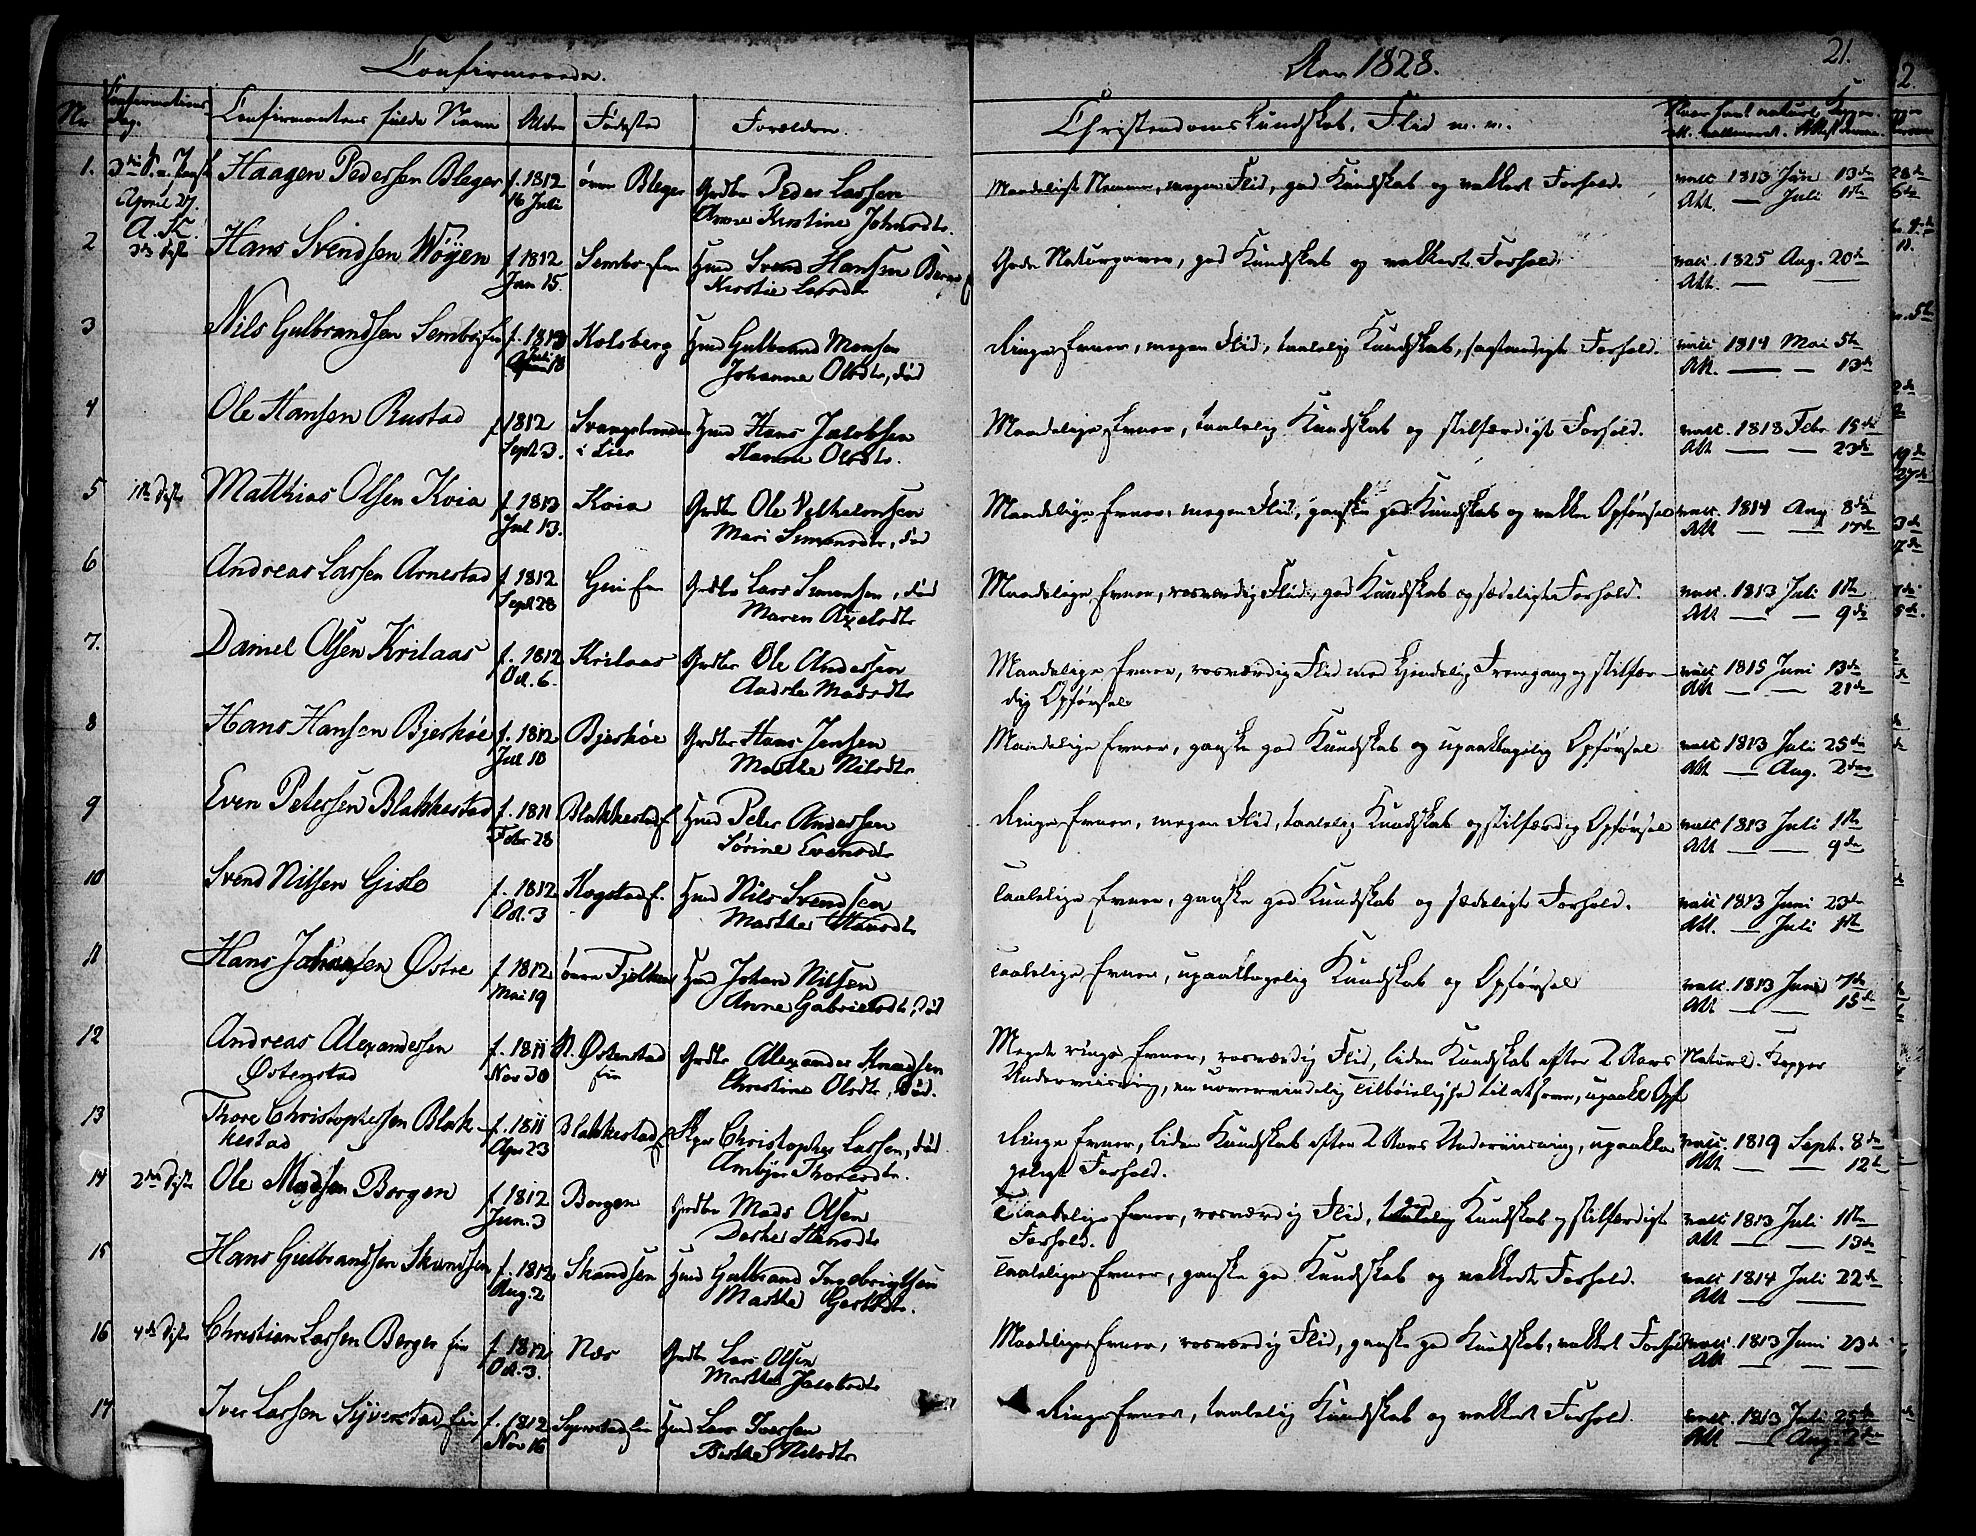 Confirmerede.
Aar 1828.
21.
Nr
Confirmations Dag.
Confirmantens fulde Navn
Alder
Fødested
Forældre.
Christendomskundskab, Flid m. m.
1.
April 27.
Haagen Pedersen Bleger
f. 1812
16 Juli
øvre Bleger
Grdbr Peder Larsen
Anne Kirstine Johnsdtr.
Maadeligt Nemme, megen Flid, god Kundskab og vakkert Forhold.
vacc. 1813 Jun 13de
Att. — Juli 1ste
2
Hans Svendsen Wøyen
f. 1812
Jan 15.
Sembs Eie
Huusmd Svend Hansen
Kirstie Larsdtr
Gode Naturgaver, god Kundskab og vakkert Forhold.
vacc. 1825 Aug. 20de
Att. — —
3
Nils Gulbrandsen Sembseie
f. 1813
Juli 18
Kolsberg
Hmd Gulbrand Monsen
Johanne Olsdtr, død
Ringe Evner, megen Flid, taalelig Kundskab, sagtmodigt Forhold.
vacc. 1814 Mai 5te
Att. — — 13de
4
Ole Hansen Rustad
f 1812
Sept 3.
Svangstranden
i Lier
Hmd Hans Jacobsen
Hanne Olsdtr.
Maadelige Evner, taalelig Kundskab og stilfærdigt Forhold.
vacc. 1813 Febr 15de
Att — — 23de
5
Matthias Olsen Kvia
f. 1813
Jul 13.
Kvia
Grdbr Ole Velhelmsen
Mari Simensdtr, død
Maadelige Evner, megen Flid, ganske god Kundskab og vakker Opførsel
vacc. 1814 Aug 8de
Att — — 17de
6
Andreas Larsen Arnestad
f. 1812
Sept 28
Gui Eie
Grdbr Lars Simensen, død
Maren Axelsdtr
Maadelige Evner, rosværdig Flid, god Kundskab og sædeligt Forhold.
vacc. 1813 Juli 1ste
Att — — 9de
7.
Daniel Olsen Krilaas
f. 1812
Oct. 6.
Krilaas
Grdbr Ole Andersen
Aadste Madsdtr
Maadelige Evner, rosværdig Flid med kjendelig Fremgang og stilfær-
dig Opførsel
vacc 1815 Juni 13de
Att — — 21de
8
Hans Hansen Bjerkøe
f. 1812
Jul 10
Bjerkøe
Grdbr Hans Jensen
Marthe Nilsdtr
Maadelige Evner, ganske god Kundskab og upaaklagelig Opførsel
vacc 1813 Juli 25de
Att — Aug. 2den
9
Even Petersen Blakkestad
f. 1811
Febr 28
Blakkestad
Hmd Peter Andersen
Sørine Evensdtr
Ringe Evner, megen Flid, taalelig Kundskab og stilfærdig Opførsel
vacc 1813 Juli 1ste
Att — — 9de
10
Svend Nilsen Gisle
f. 1812
Oct. 3
Kogstad E.
Hmd Nils Svendsen
Marthe Hansdtr
Taalelige Evner, ganske god Kundskab og sædeligt Forhold.
vacc 1813 Juni 23de
Att. — Juli 1ste
11
Hans Johansen Østre
f. 1812
Mai 19
øvre
Hmd Johan Nilsen
Anne Gabrielsdtr, død
Taalelige Evner, upaaklagelig Kundskab og Opførsel
vacc. 1813 Juni 7de
Att — — 15de
12
Andreas Alexandersen
Østenstad
f. 1811
Nov 30
N. Østenstad
Eie
Grdbr Alexander Knudsen
Christine Olsdtr, død.
Meget ringe Evner, rosværdig Flid, liden Kundskab efter 2 Aars
Underviisning, en uovervindelig Tilbøielighed til at
Naturl. Kopper
13
Thore Christophersen Blak-
kestad
f. 1811
Apr 23
Blakkestad
Christopher Larsen, død
Ambjør Thoresdtr.
Ringe Evner, liden Kundskab efter 2 Aars Underviisning, upaakla
geligt Forhold.
vacc. 1819 Sept. 8de
Att — — 12te
14
2det Distr
Ole Madsen Borgen
f. 1812
Jun. 3
Borgen
Grdbr Mads Olsen
Dorthe Hansdtr
Taalelige Evner, rosværdig Flid, god Kundskab og stilfærdigt
Forhold.
vacc 1813 Juli 1ste
Att — — 13de
15
Hans Gulbrandsen Skandsen
f. 1812
Aug. 2
Skandsen
Hmd Gulbrand Ingebrigtsen
Marthe
Taalelige Evner, ganske god Kundskab og vakkert Forhold.
vacc 1814 Juli 22de
Att — —
16
4de Distr
Christian Larsen Berger Eie
f. 1812
Oct. 3.
Næs
Grdbr Lars Olsen
Marthe Jacobsdtr
Maadelige Evner, rosværdig Flid, ganske god Kundskab, vakkert Forhold
vacc. 1813 Juni 23de
Att — —
17
Iver Larsen Syverstad Eie
f. 1812
Nov 16
Syverstad Eie
Hmd Lars Iversen
Birthe Nilsdtr
Ringe Evner, taalelig Kundskab og vakkert Forhold.
vacc. 1813 Juli 25de
Att — Aug. 2den